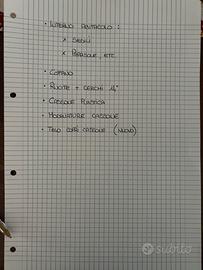 • INTERNO ABITACOLO:
  * SEDILI
  * PARASOLE, ETC.
• COFANO
• RUOTE + CERCHI 14"
• CASSONE PLASTICA
• MODANATURE CASSONE
• TELO COPRI CASSONE (NUOVO)
subito